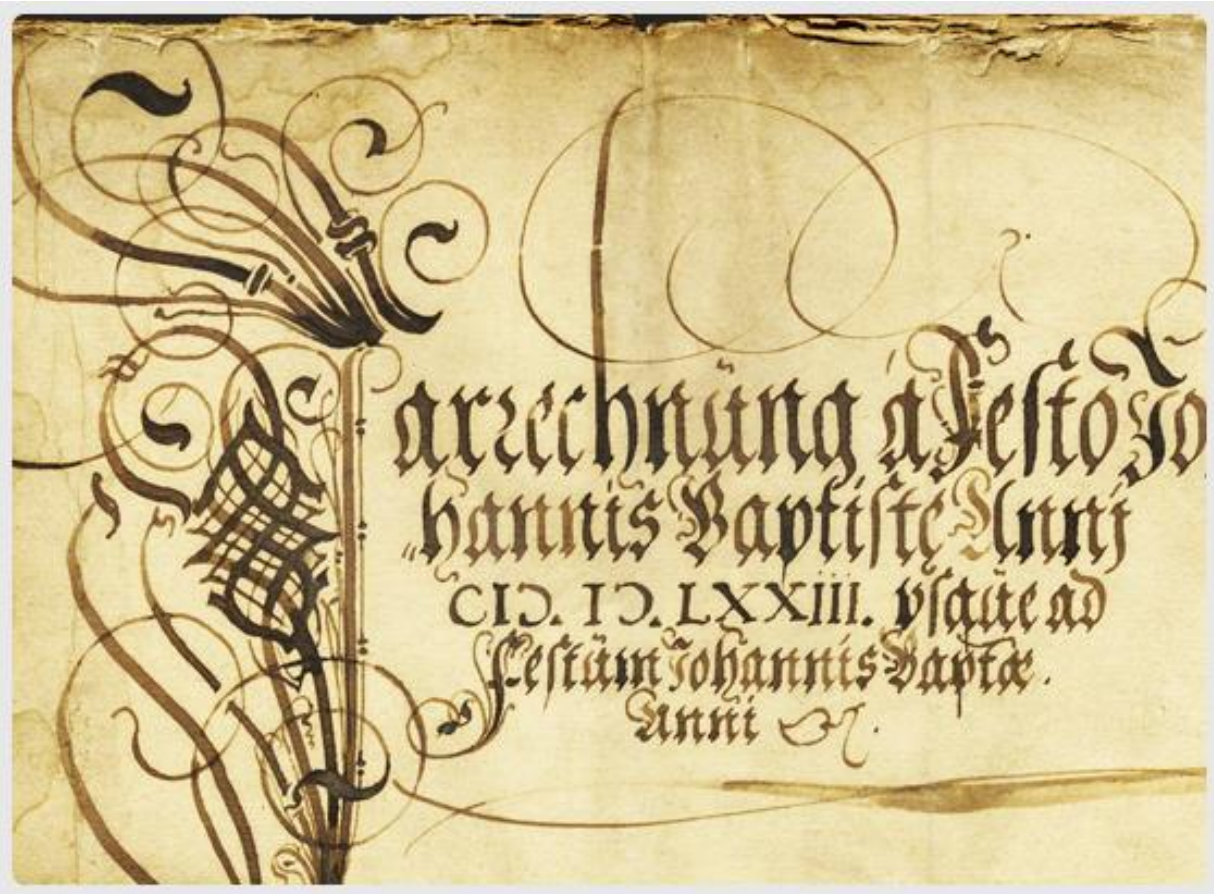 Jarrechnüng á Festo Jo
hannis Baptistę Annj
CIƆ. IƆ. LXXIII. vsqüe ad
Festüm Johannis Baptæ.
Anni &c.